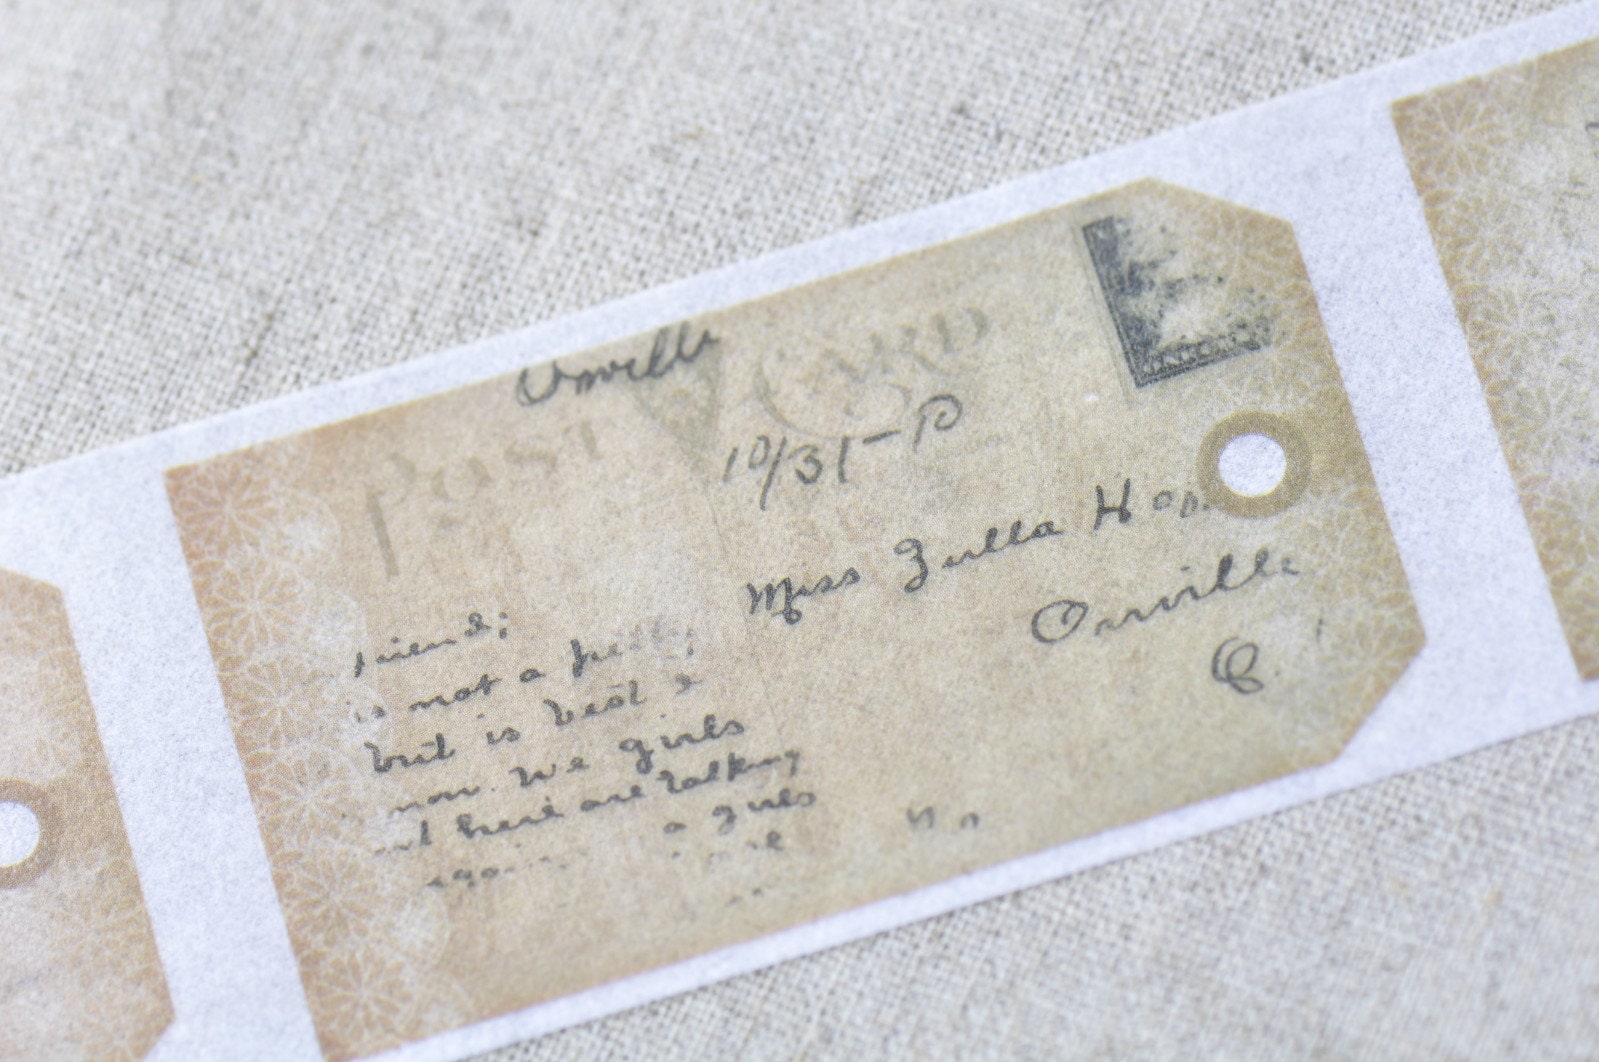 Orville
POST CARD
10/31-10
Miss Zulla Hon.
Orville
O.
riend;
is not a
but is best
now. We girls
here are talking
a girls